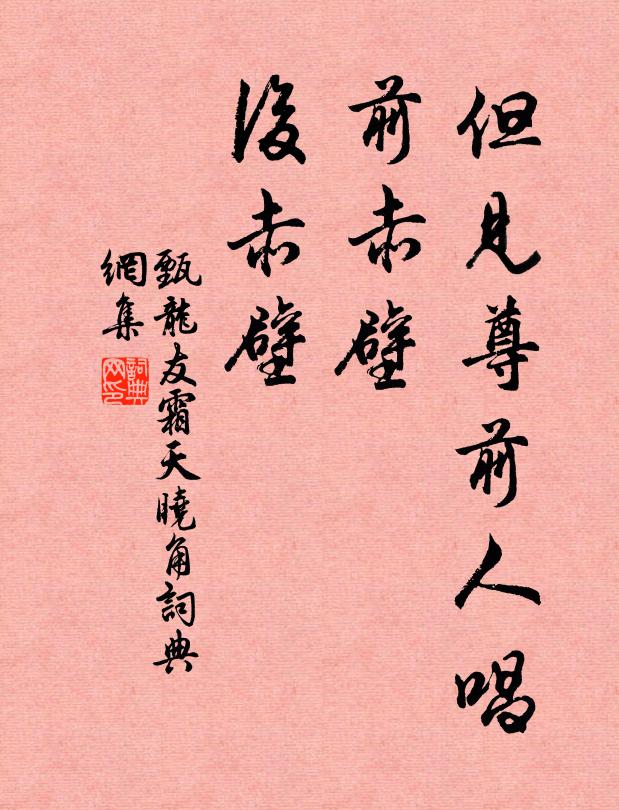 但見尊前人唱
前赤壁
後赤壁
甄龍友霜天曉角詞典
網集
詞典網印